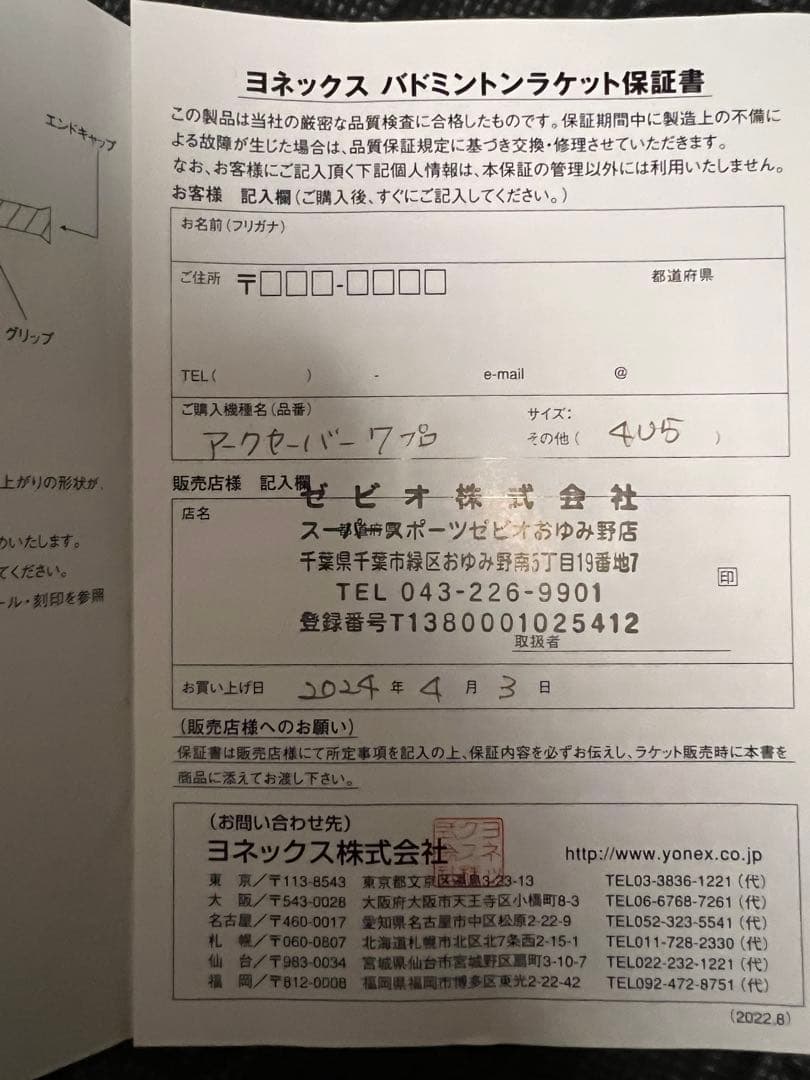 エンドキャップ
グリップ
上がりの形状が、
めいたします。
てください。
ール・刻印を参照
ヨネックス バドミントンラケット保証書
この製品は当社の厳密な品質検査に合格したものです。保証期間中に製造上の不備に
よる故障が生じた場合は、品質保証規定に基づき交換・修理させていただきます。
なお、お客様にご記入頂く下記個人情報は、本保証の管理以外には利用いたしません。
お客様 記入欄(ご購入後、すぐにご記入してください。)
お名前(フリガナ)
ご住所 〒□□□-□□□□ 都道府県
TEL( ) - e-mail @
ご購入機種名(品番) サイズ:
アークセーバー7プロ その他( 4U5 )
販売店様 記入欄
ゼビオ株式会社
店名
都道府県
スーパースポーツゼビオおゆみ野店
千葉県千葉市緑区おゆみ野南5丁目19番地7
印
TEL 043-226-9901
登録番号T1380001025412
取扱者
お買い上げ日 2024 年 4 月 3 日
(販売店様へのお願い)
保証書は販売店様にて所定事項を記入の上、保証内容を必ずお伝えし、ラケット販売時に本書を
商品に添えてお渡し下さい。
(お問い合わせ先)
ヨネックス株式会社 http://www.yonex.co.jp
東 京/〒113-8543 東京都文京区湯島3-23-13 TEL03-3836-1221(代)
大 阪/〒543-0028 大阪府大阪市天王寺区小橋町8-3 TEL06-6768-7261(代)
名古屋/〒460-0017 愛知県名古屋市中区松原2-22-9 TEL052-323-5541(代)
札 幌/〒060-0807 北海道札幌市北区北7条西2-15-1 TEL011-728-2330(代)
仙 台/〒983-0034 宮城県仙台市宮城野区扇町3-10-7 TEL022-232-1221(代)
福 岡/〒812-0008 福岡県福岡市博多区東光2-22-42 TEL092-472-8751(代)
(2022.8)